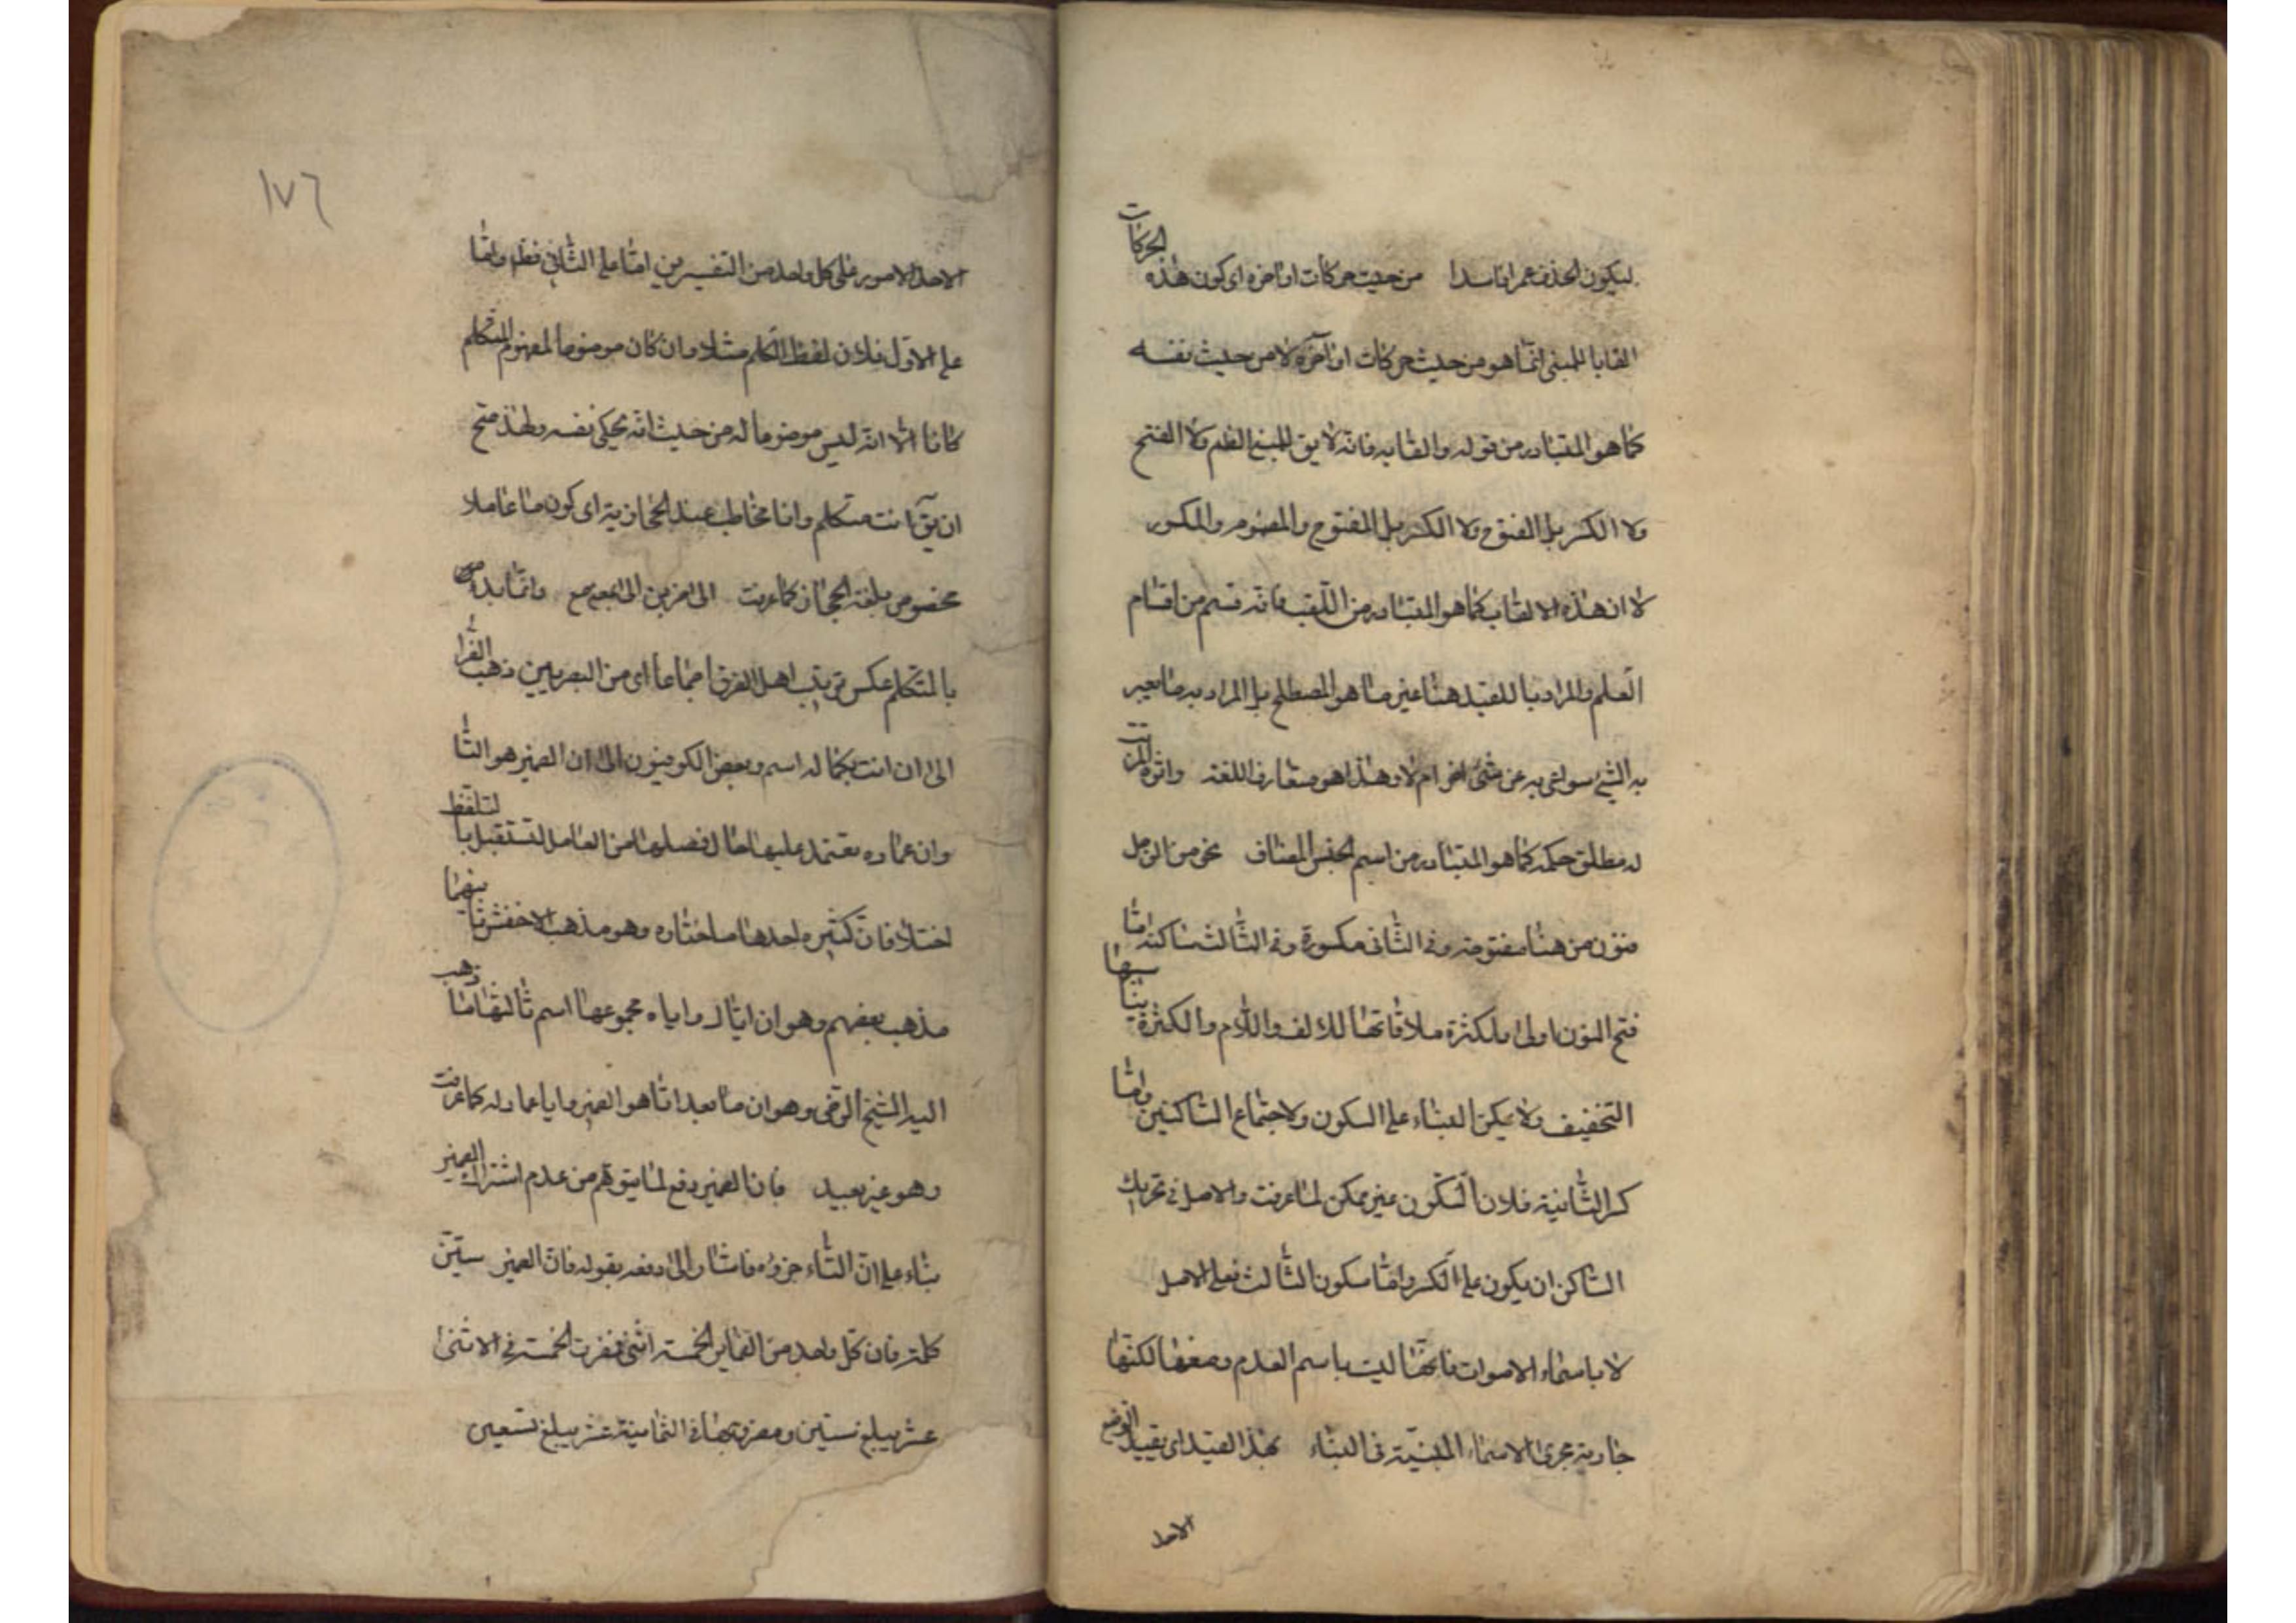 ليكون الحذف من حيث حركات اواخره اى كون هذه الحركات
القابا للمبنى انما هو من حيث حركات اواخره لا من حيث نفسه
كما هو المتبادر من قوله والقابه فانه لا يق للمبنى الضم ولا الفتح
ولا الكسر بل المفتوح ولا الكسر بل المفتوح والمضموم والمكسور
لا ان هذه الالقاب كما هو المتبادر من اللقب فانه قسم من اقسام
العلم والمراد باللقب هنا غير ما هو المصطلح بل المراد به ما يعبر
به الشئ سواء به عن شئ اخر ام لا وهذا هو متعارف اللغة
له مطلق حكمه كما هو المتبادر من اسم الجنس المضاف نحو من الرجل
فنون من هنا مفتوحة وفى الثانى مكسورة وفى الثالث ساكنة اما
فتح النون اولى ملاقاتها للالف واللام والكثرة يناسبها
التخفيف ولا يمكن البناء على السكون ولاجتماع الساكنين واما
كسر الثانية فلان السكون غير ممكن لما عرفت والاصل فى تحريك
الساكن ان يكون على الكسر واما سكون الثالث فعلى الاصل
لا باسماء الاصوات فانها ليست باسم لعدم وضعها لكنها
جارية مجرى الاسماء المبنية فى البناء بهذا القيد اى بقيد الوضع
الاحد
١٧٦
الاحد الامور على كل واحد من التفسيرين اما على الثانى فظ واما
على الاول فلان لفظ المتكلم مثلا وان كان موضوعا لمفهوم المتكلم
كانا الا انه ليس موضوعا له من حيث انه يحكى نفسه ولهذا صح
ان يق انت متكلم وانا مخاطب عند الحجازية اى كون ما عاملا
مخصوص بلغة الحجاز كما عرفت وانما بدء
بالمتكلم عكس ترتيب اهل اى من البصريين ذهب الفرا
الى ان انت بكماله اسم وبعض الكوفيون الى ان الضمير هو التا
وان عماده يعتمد عليها حال فصلها من العامل لتستقل بالتلفظ
اختلافات كثيره احدها ما اختاره وهو مذهب الاخفش ثانيهما
مذهب بعضهم وهو ان اياك واياه مجموعها اسم ثالثها ما ذهب
اليه الشيخ الرضى وهو ان ما بعد ايا هو الضمير وايا عماد له كما عرفت
وهو غير بعيد فان الضمير دفع لما يتوهم من عدم اشتراك الضمير
بناء على ان التاء جزؤه فاشار الى دفعه بقوله فان الضمير ستين
كلمة فان كل واحد من الضماير الخمسة اثنى فضرب الخمسة فى الاثنى
عشر يبلغ ستين وضربها فى الثمانية عشر يبلغ تسعين